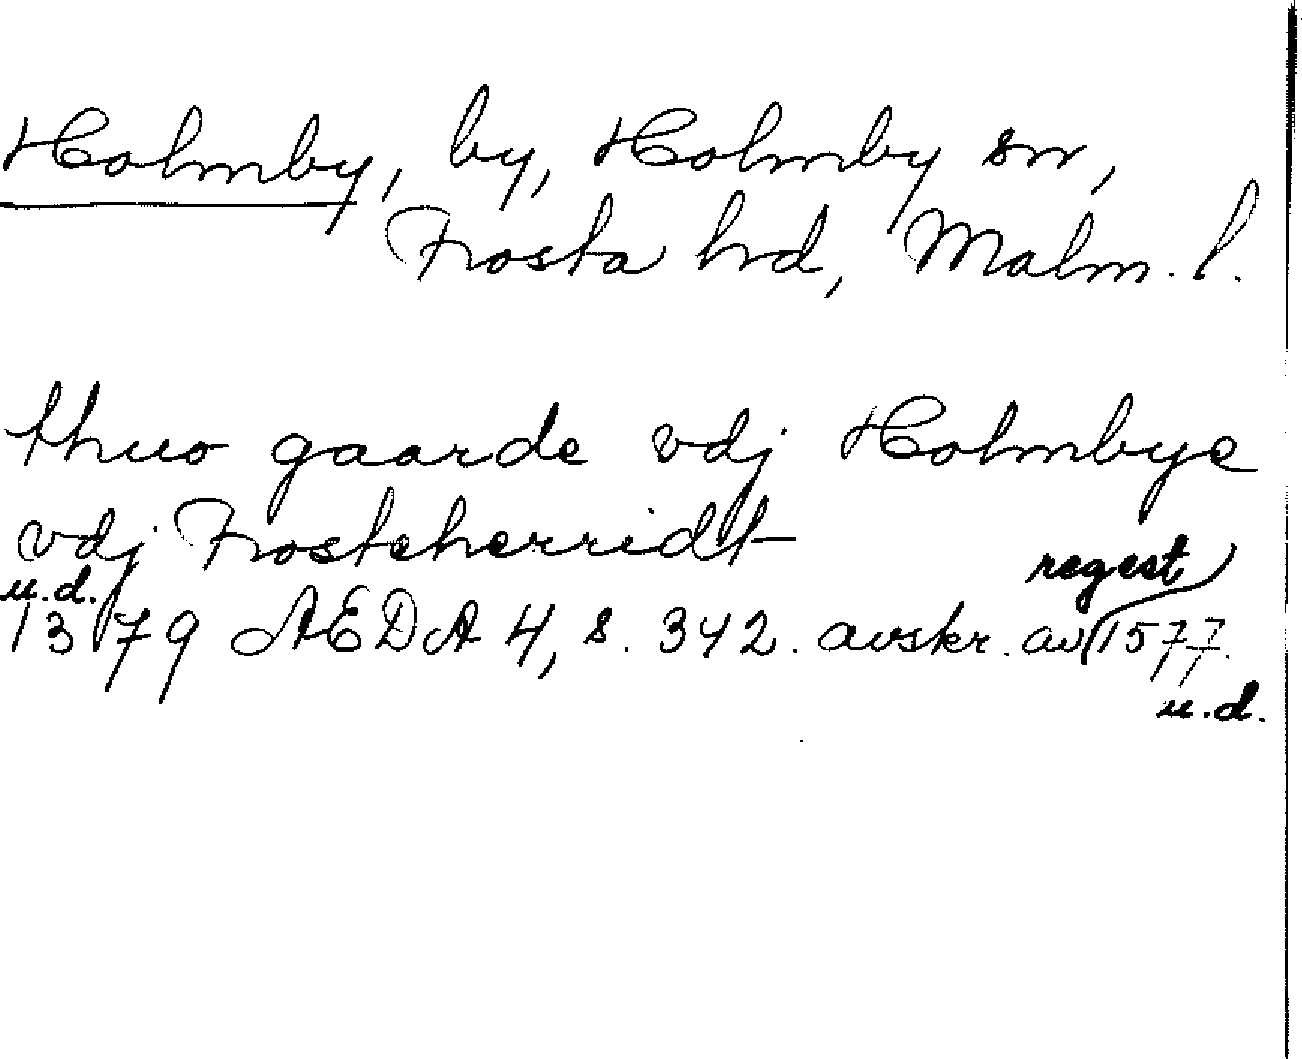 Holmby, by, Holmby sn,
Frosta hrd, Malm. l.
thuo gaarde vdj Holmbye
vdj Frosteherridt
u.d. regest
1379 AEDA 4, s. 342. avskr. av 1577.
u.d.